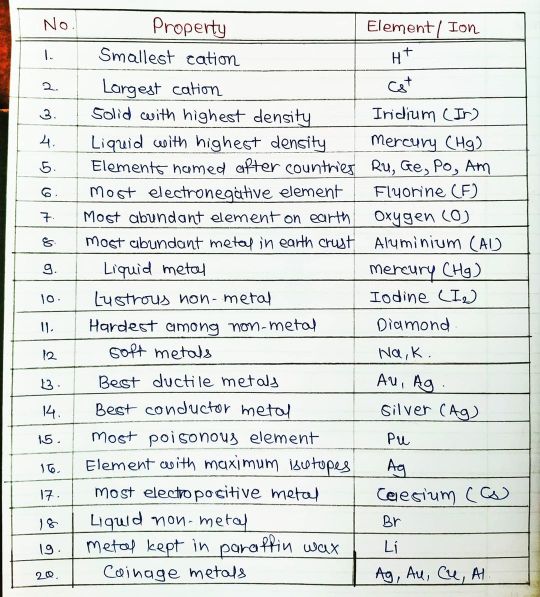 No. Property Element/Ion
1. Smallest cation H+
2. Largest cation Cs+
3. Solid with highest density Iridium (Ir)
4. Liquid with highest density Mercury (Hg)
5. Elements named after countries Ru, Ge, Po, Am
6. Most electronegative element Fluorine (F)
7. Most abundant element on earth Oxygen (O)
8 Most abundant metal in earth crust Aluminium (Al)
9. Liquid metal Mercury (Hg)
10. Lustrous non-metal Iodine (I2)
11. Hardest among non-metal Diamond.
12 Soft metals Na, K.
13. Best ductile metals Au, Ag.
14. Best conductor metal Silver (Ag)
15. Most poisonous element Pu
16. Element with maximum isotopes Ag
17. Most electropositive metal Ceiesium (Cs)
18 Liquid non-metal Br
19. Metal kept in paraffin wax Li
20. Coinage metals Ag, Au, Cu, Al.